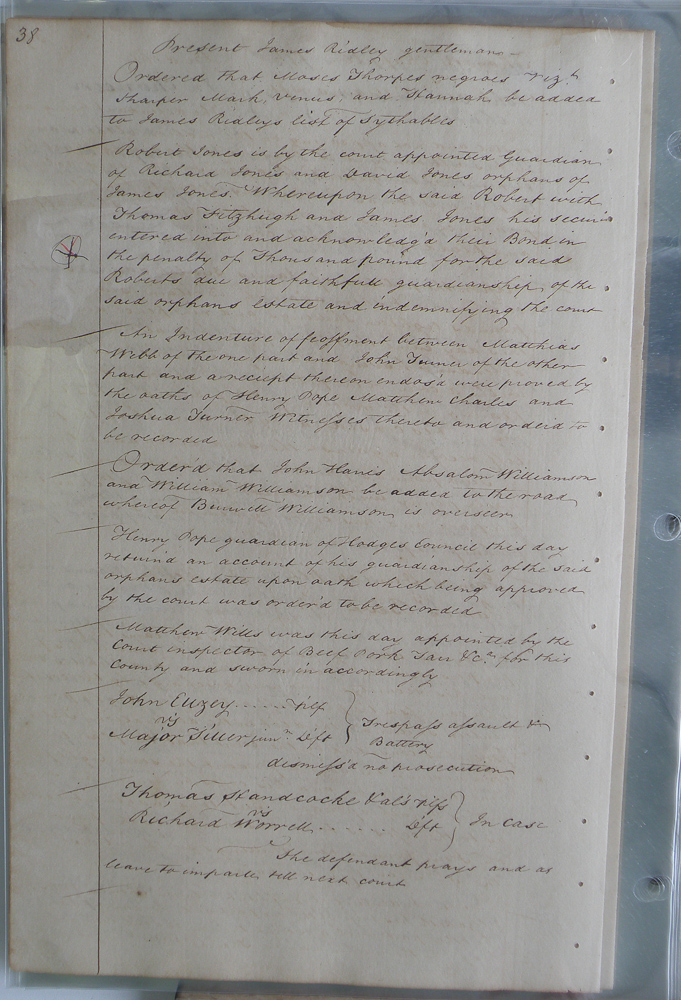 38
Present James Ridley gentleman
Ordered that Moses Thorpes negroes vizt
Sharper Mark, Venus, and Hannah be added
to James Ridleys list of Tythables
Robert Jones is by the court appointed Guardian
of Richard Jones and David Jones orphans of
James Jones. Whereupon the said Robert with
Thomas Fitzhugh and James Jones his
entered into and acknowledg'd their Bond in
the penalty of Thousand pound for the said
Roberts due and faithfull guardianship of the
said orphans estate and indemnifying the court
An Indenture of feoffment between Matthias
Webb of the one part and John Turner of the other
part and a reciept thereon endos'd were proved by
the oaths of Henry Pope Matthew Charles and
Joshua Turner Witnesses thereto and orderd to
be recorded
Order'd that John Harris Absalom Williamson
and William Williamson be added to the road
whereof Burwell Williamson is overseer
Henry Pope guardian of Hodges Council this day
return'd an account of his guardianship of the said
orphan's estate upon oath which being approved
by the court was order'd to be recorded
Matthew Wills was this day appointed by the
Court inspector of Beef Pork Tarr &ca for this
County and sworn in accordingly
John Euzey ...... Plf
vs
Major Tiller junr Dft
Trespass assault &
Battery
dismiss'd no prosecution
Thomas Handcocke &al's Plfs
vs
Richard Worrell ...... Dft
In Case
The defendant prays and as
leave to imparle till next court